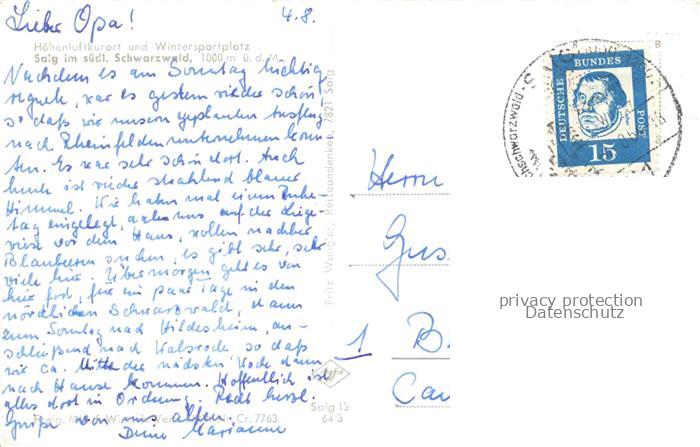 Lieber Opa! 4.8.
Höhenluftkurort und Wintersportplatz
Saig im südl. Schwarzwald, 1000 m ü. d. M.
Nachdem es am Sonntag tüchtig
regnete, war es gestern wieder schön
so daß wir unseren geplanten Ausflug
nach Rheinfelden unternehmen konn-
ten. Es war sehr schön dort. Auch
heute ist wieder strahlend blauer
Himmel. Wir haben mal einen Ruhe-
tag eingelegt, aalen uns auf der Liege-
wiese vor dem Haus, wollen nachher
Blaubeeren suchen, es gibt sehr, sehr
viele hier. Übermorgen geht es von
hier fort, für ein paar Tage in den
nördlichen Schwarzwald, dann
zum Sonntag nach Hildesheim, an-
schließend nach Walsrode so daß
wir ca. Mitte der nächsten Woche dann
nach Hause kommen. Hoffentlich ist
alles dort in Ordnung. Recht herzl.
Grüße von uns allen
Deine Marianne
Cr. 7763
Fritz Wangler, Reiseandenken, 7821 Saig
Saig 12
64 3
DEUTSCHE BUNDES
POST
15
B
Hochschwarzwald
Herrn
Gus
1 B
privacy protection
Datenschutz